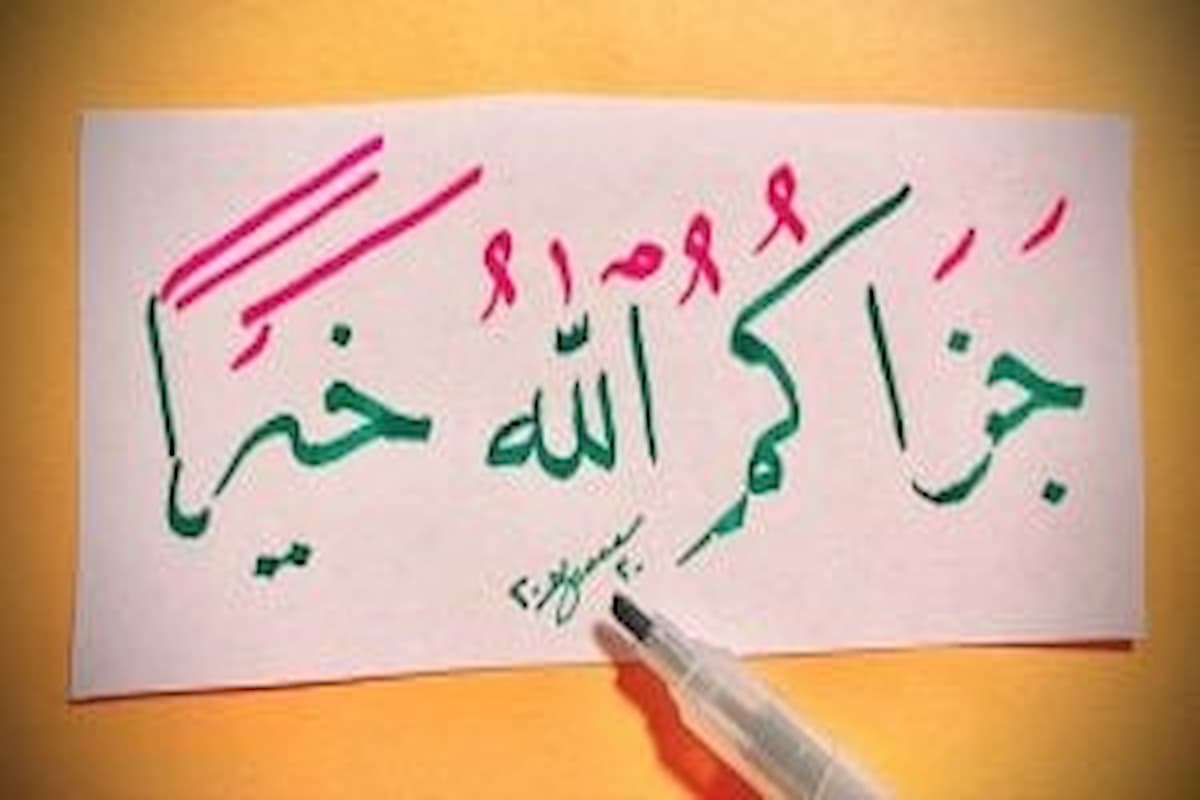 جَزَاكُمُ اللهُ خَيْرًا